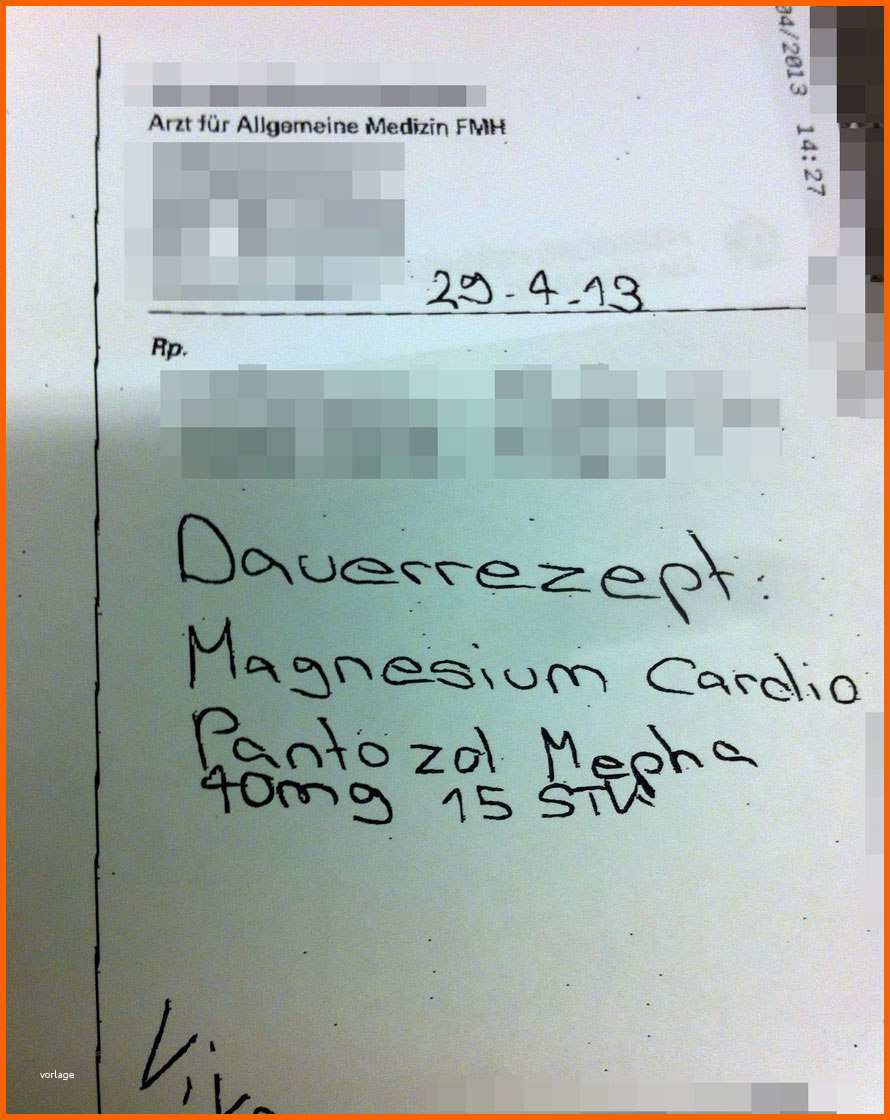 04/2013 14:27
Arzt für Allgemeine Medizin FMH
29.4.13
Rp.
Dauerrezept:
Magnesium Cardio
Pantozol Mepha
40mg 15 Stk
vorlage